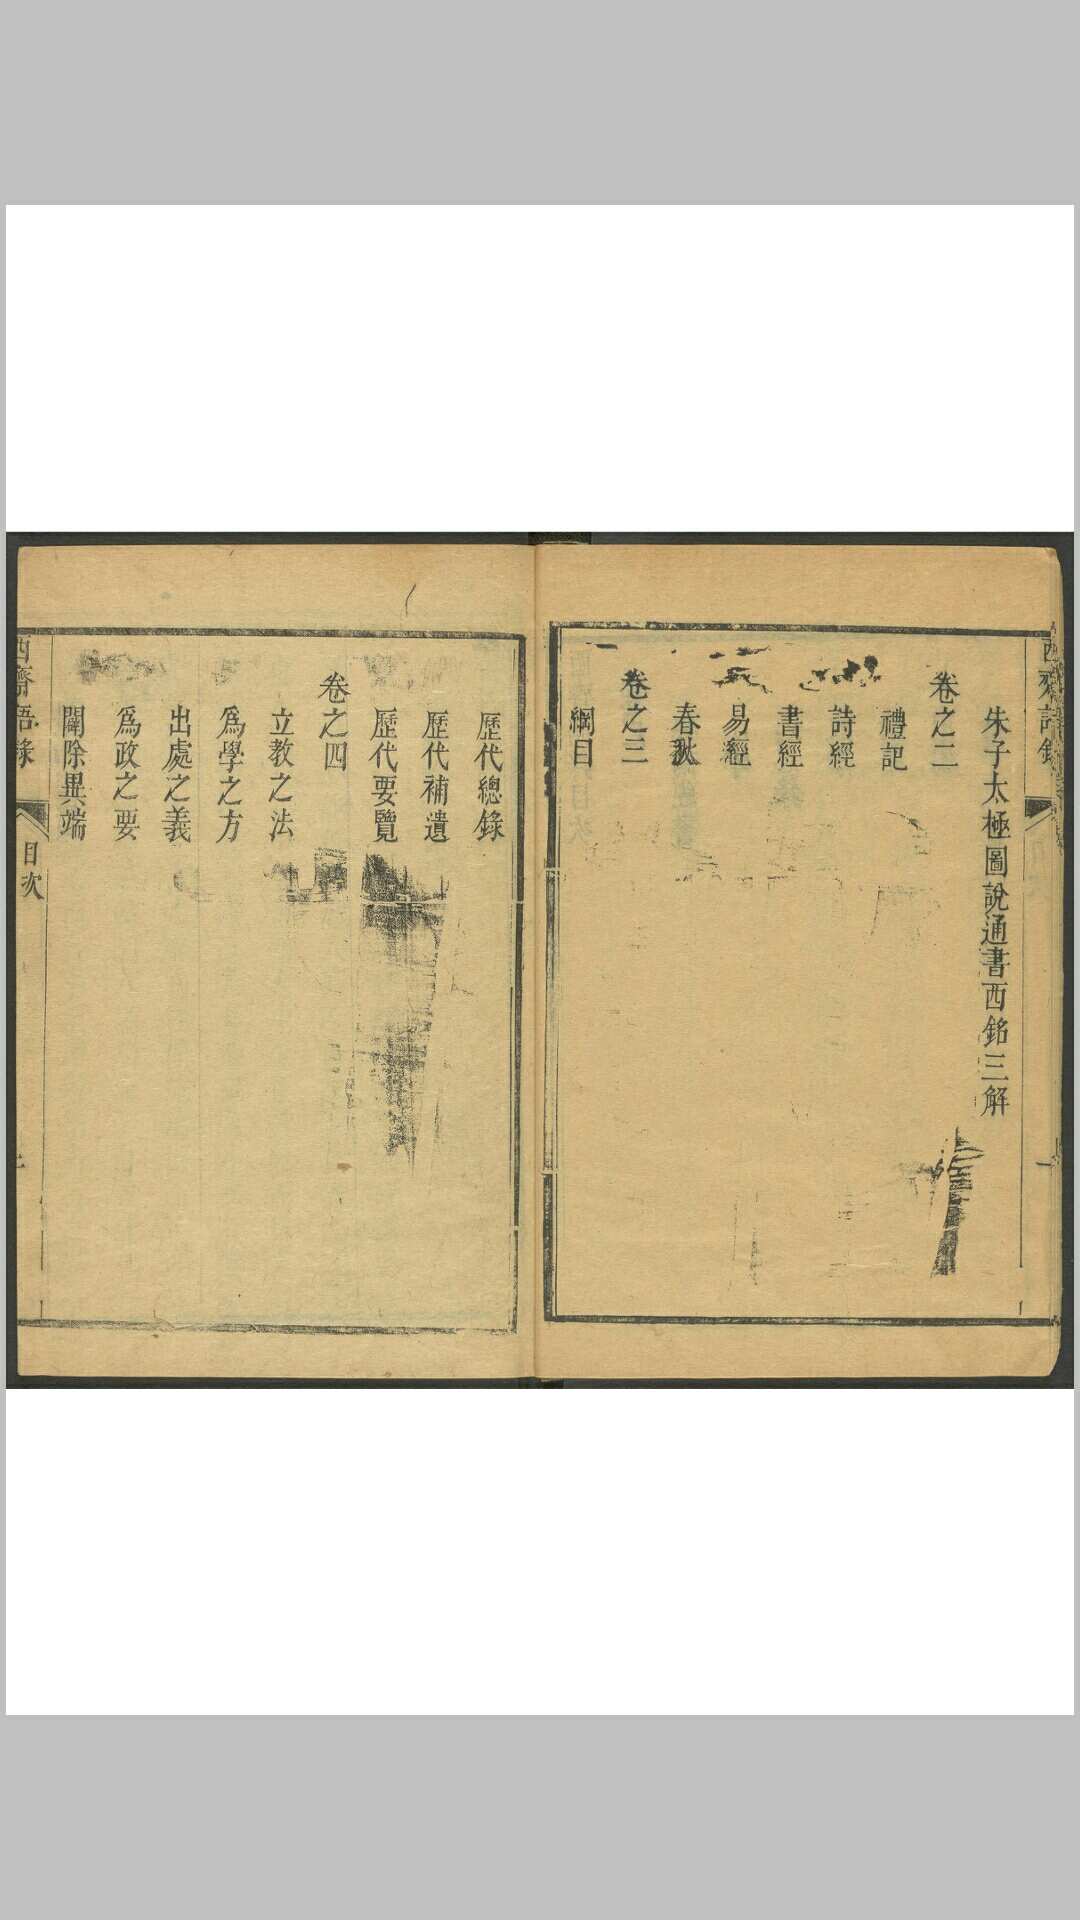 朱子太極圖說通書西銘三解
卷之二
禮記
詩經
書經
易經
春秋
卷之三
綱目
歷代總錄
歷代補遺
歷代要覽
卷之四
立教之法
爲學之方
出處之義
爲政之要
闢除異端
西齋語錄
目次